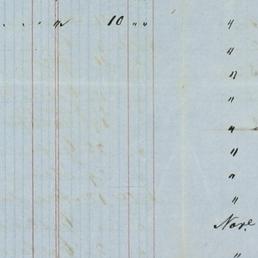 . . . " 10 " "
"
"
"
"
"
"
"
"
Nov.e
"